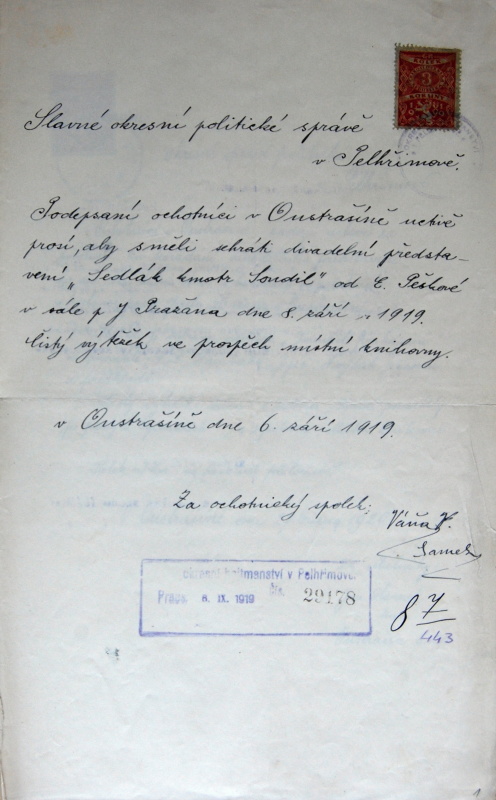 KOLEK
3
KORUNY
1919
Slavné okresní politické správě
v Pelhřimově.
Podepsaní ochotníci v Onstrašíně uctivě
prosí, aby směli sehráti divadelní předsta-
vení „Sedlák kmotr Soudil" od E. Peškové
v sále p J Pražána dne 8. září 1919.
Čistý výtěžek ve prospěch místní knihovny.
v Onstrašíně dne 6. září 1919.
Za ochotnický spolek:
Váňa
Samek
okresní hejtmanství v Pelhřimově.
Praes. 8. IX. 1919 čís. 29178
8 7
443
1